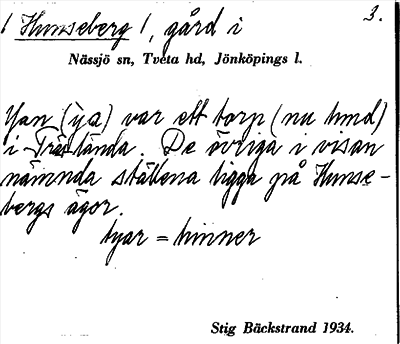 / Hunseberg /, gård i
3.
Nässjö sn, Tveta hd, Jönköpings l.
Yan (ỳa) var ett torp (nu hmd)
i Träslända. De övriga i visan
nämnda ställena ligga på Hunse-
bergs ägor.
hyar = hinner
Stig Bäckstrand 1934.